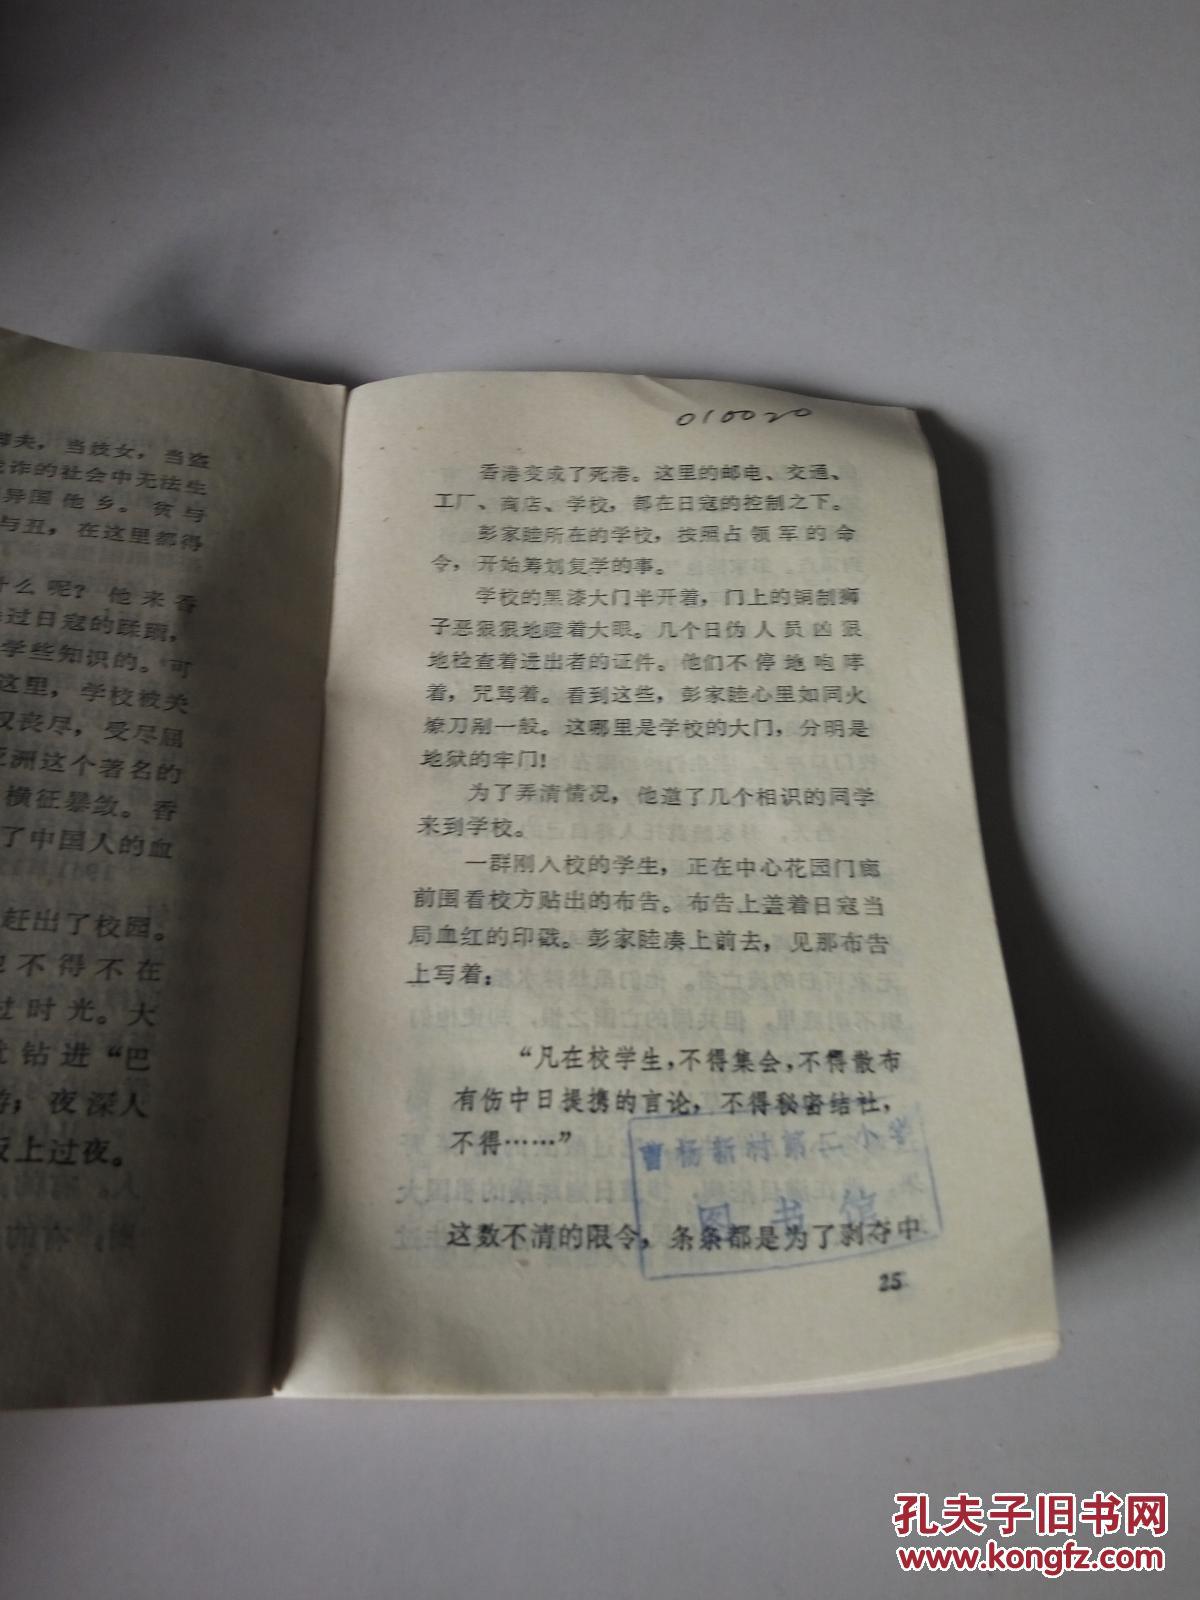 夫，当妓女，当盗
诈的社会中无法生
异国他乡。贫与
与丑，在这里都得
什么呢？他来看
过日寇的蹂躏，
学些知识的。可
这里，学校被关
丧尽，受尽屈
洲这个著名的
横征暴敛。香
了中国人的血
赶出了校园。
不得不在
过时光。大
钻进“巴
；夜深人
板上过夜。
010020
香港变成了死港。这里的邮电、交通、
工厂、商店、学校，都在日寇的控制之下。
彭家睦所在的学校，按照占领军的命
令，开始筹划复学的事。
学校的黑漆大门半开着，门上的铜制狮
子恶狠狠地瞪着大眼。几个日伪人员凶狠
地检查着进出者的证件。他们不停地咆哮
着，咒骂着。看到这些，彭家睦心里如同火
燎刀剐一般。这哪里是学校的大门，分明是
地狱的牢门！
为了弄清情况，他邀了几个相识的同学
来到学校。
一群刚入校的学生，正在中心花园门廊
前围看校方贴出的布告。布告上盖着日寇当
局血红的印戳。彭家睦凑上前去，见那布告
上写着：
“凡在校学生，不得集会，不得散布
有伤中日提携的言论，不得秘密结社，
不得……”
曹杨新村第二小学
图书馆
这数不清的限令，条条都是为了剥夺中
25
孔夫子旧书网
www.kongfz.com